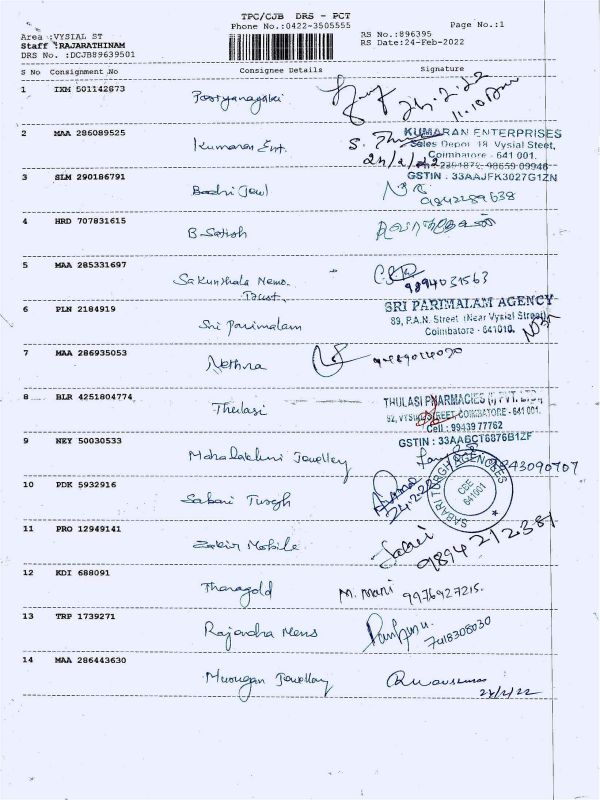 TPC/CJB DRS - PCT
Phone No.:0422-3505555
Page No.:1
Area :VYSIAL ST
Staff :RAJARATHINAM
DRS No. :DCJB89639501
RS No.:896395
RS Date:24-Feb-2022
S No Consignment No Consignee Details Signature
1 IXM 501142873
24.2.22
11.10 Am
2 MAA 286089525 Kumaran Ent.
KUMARAN ENTERPRISES
Sales Depot 18 Vysial Steet,
Coimbatore - 641 001.
24/2/22
GSTIN : 33AAJFK3027G1ZN
3 SLM 290186791 Badri Jewl
9842289638
4 HRD 707831615 B Satish
5 MAA 285331697 Sakunthala Mems.
Trust.
9894031563
6 PLN 2184919 Sri Parimalam
SRI PARIMALAM AGENCY
89, P.A.N. Street (Near Vysial Street),
Coimbatore - 641010.
7 MAA 286935053 Nethra
8 BLR 4251804774 Thulasi
THULASI PHARMACIES (I) PVT. LTD.,
92, VYSIAL STREET, COIMBATORE - 641 001.
Cell : 99439 77762
GSTIN : 33AABCT6876B1ZF
9 NEY 50030533 Mahalakshmi Jewellery
9843090707
10 PDK 5932916 Sabari Turgh
24.2.22
SABARI TURGH AGENCIES
CBE
641001
11 PRO 12949141 Zakir Mobile
Sabari
9894212381
12 KDI 688091 Thanagold M. Mani 9976927215.
13 TRP 1739271 Rajendra Mens
7418308030
14 MAA 286443630 Murugan Jewellery
24/2/22